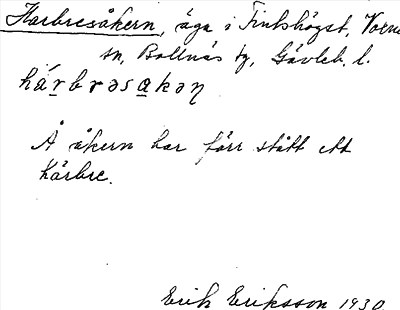 Harbresåkern, äga i Finkhögst, Vorna
sn, Bollnäs tg, Gävleb. l.
hárbrəsakəṇ
Å åkern har förr stått ett
härbre.
Erik Eriksson 1930